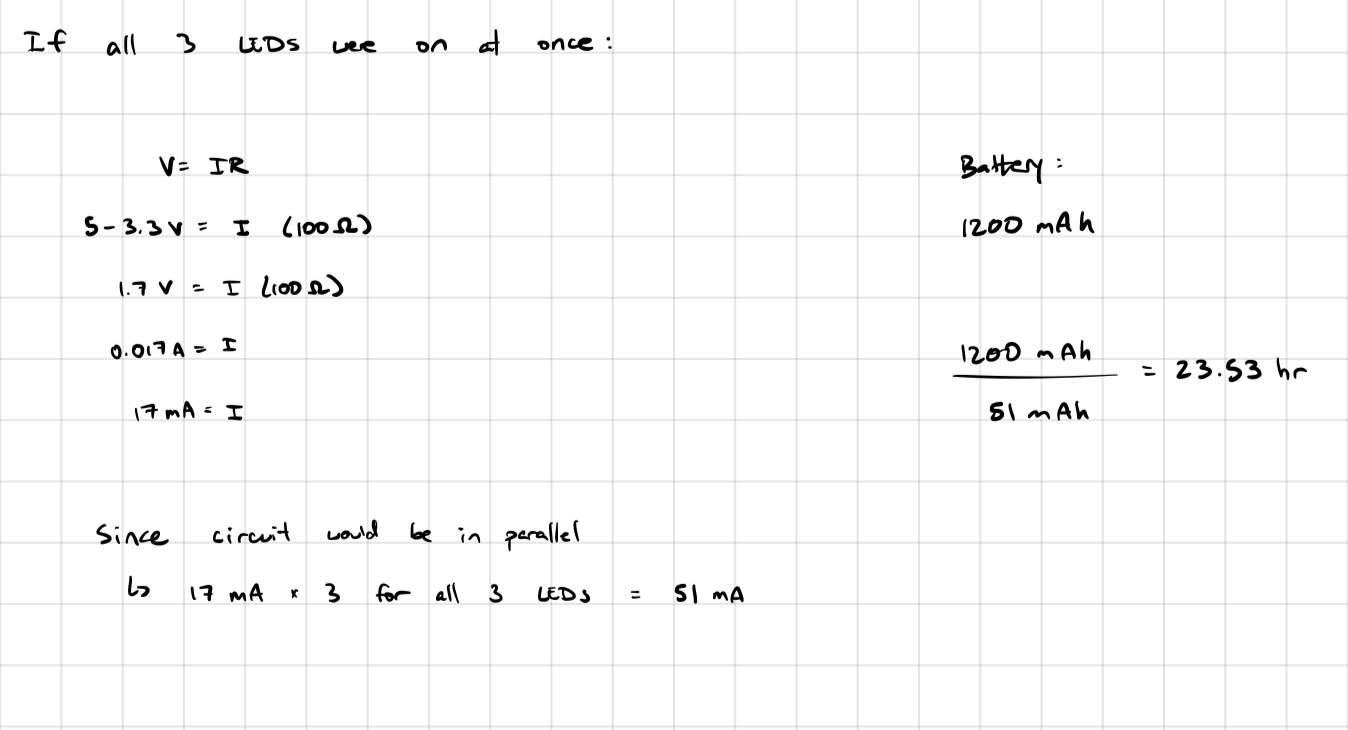 If all 3 LEDs were on at once:
V = IR
5 - 3.3 V = I (100 Ω)
1.7 V = I (100 Ω)
0.017 A = I
17 mA = I
Since circuit would be in parallel
↳ 17 mA × 3 for all 3 LEDs = 51 mA
Battery:
1200 mAh
1200 mAh
51 mAh
= 23.53 hr